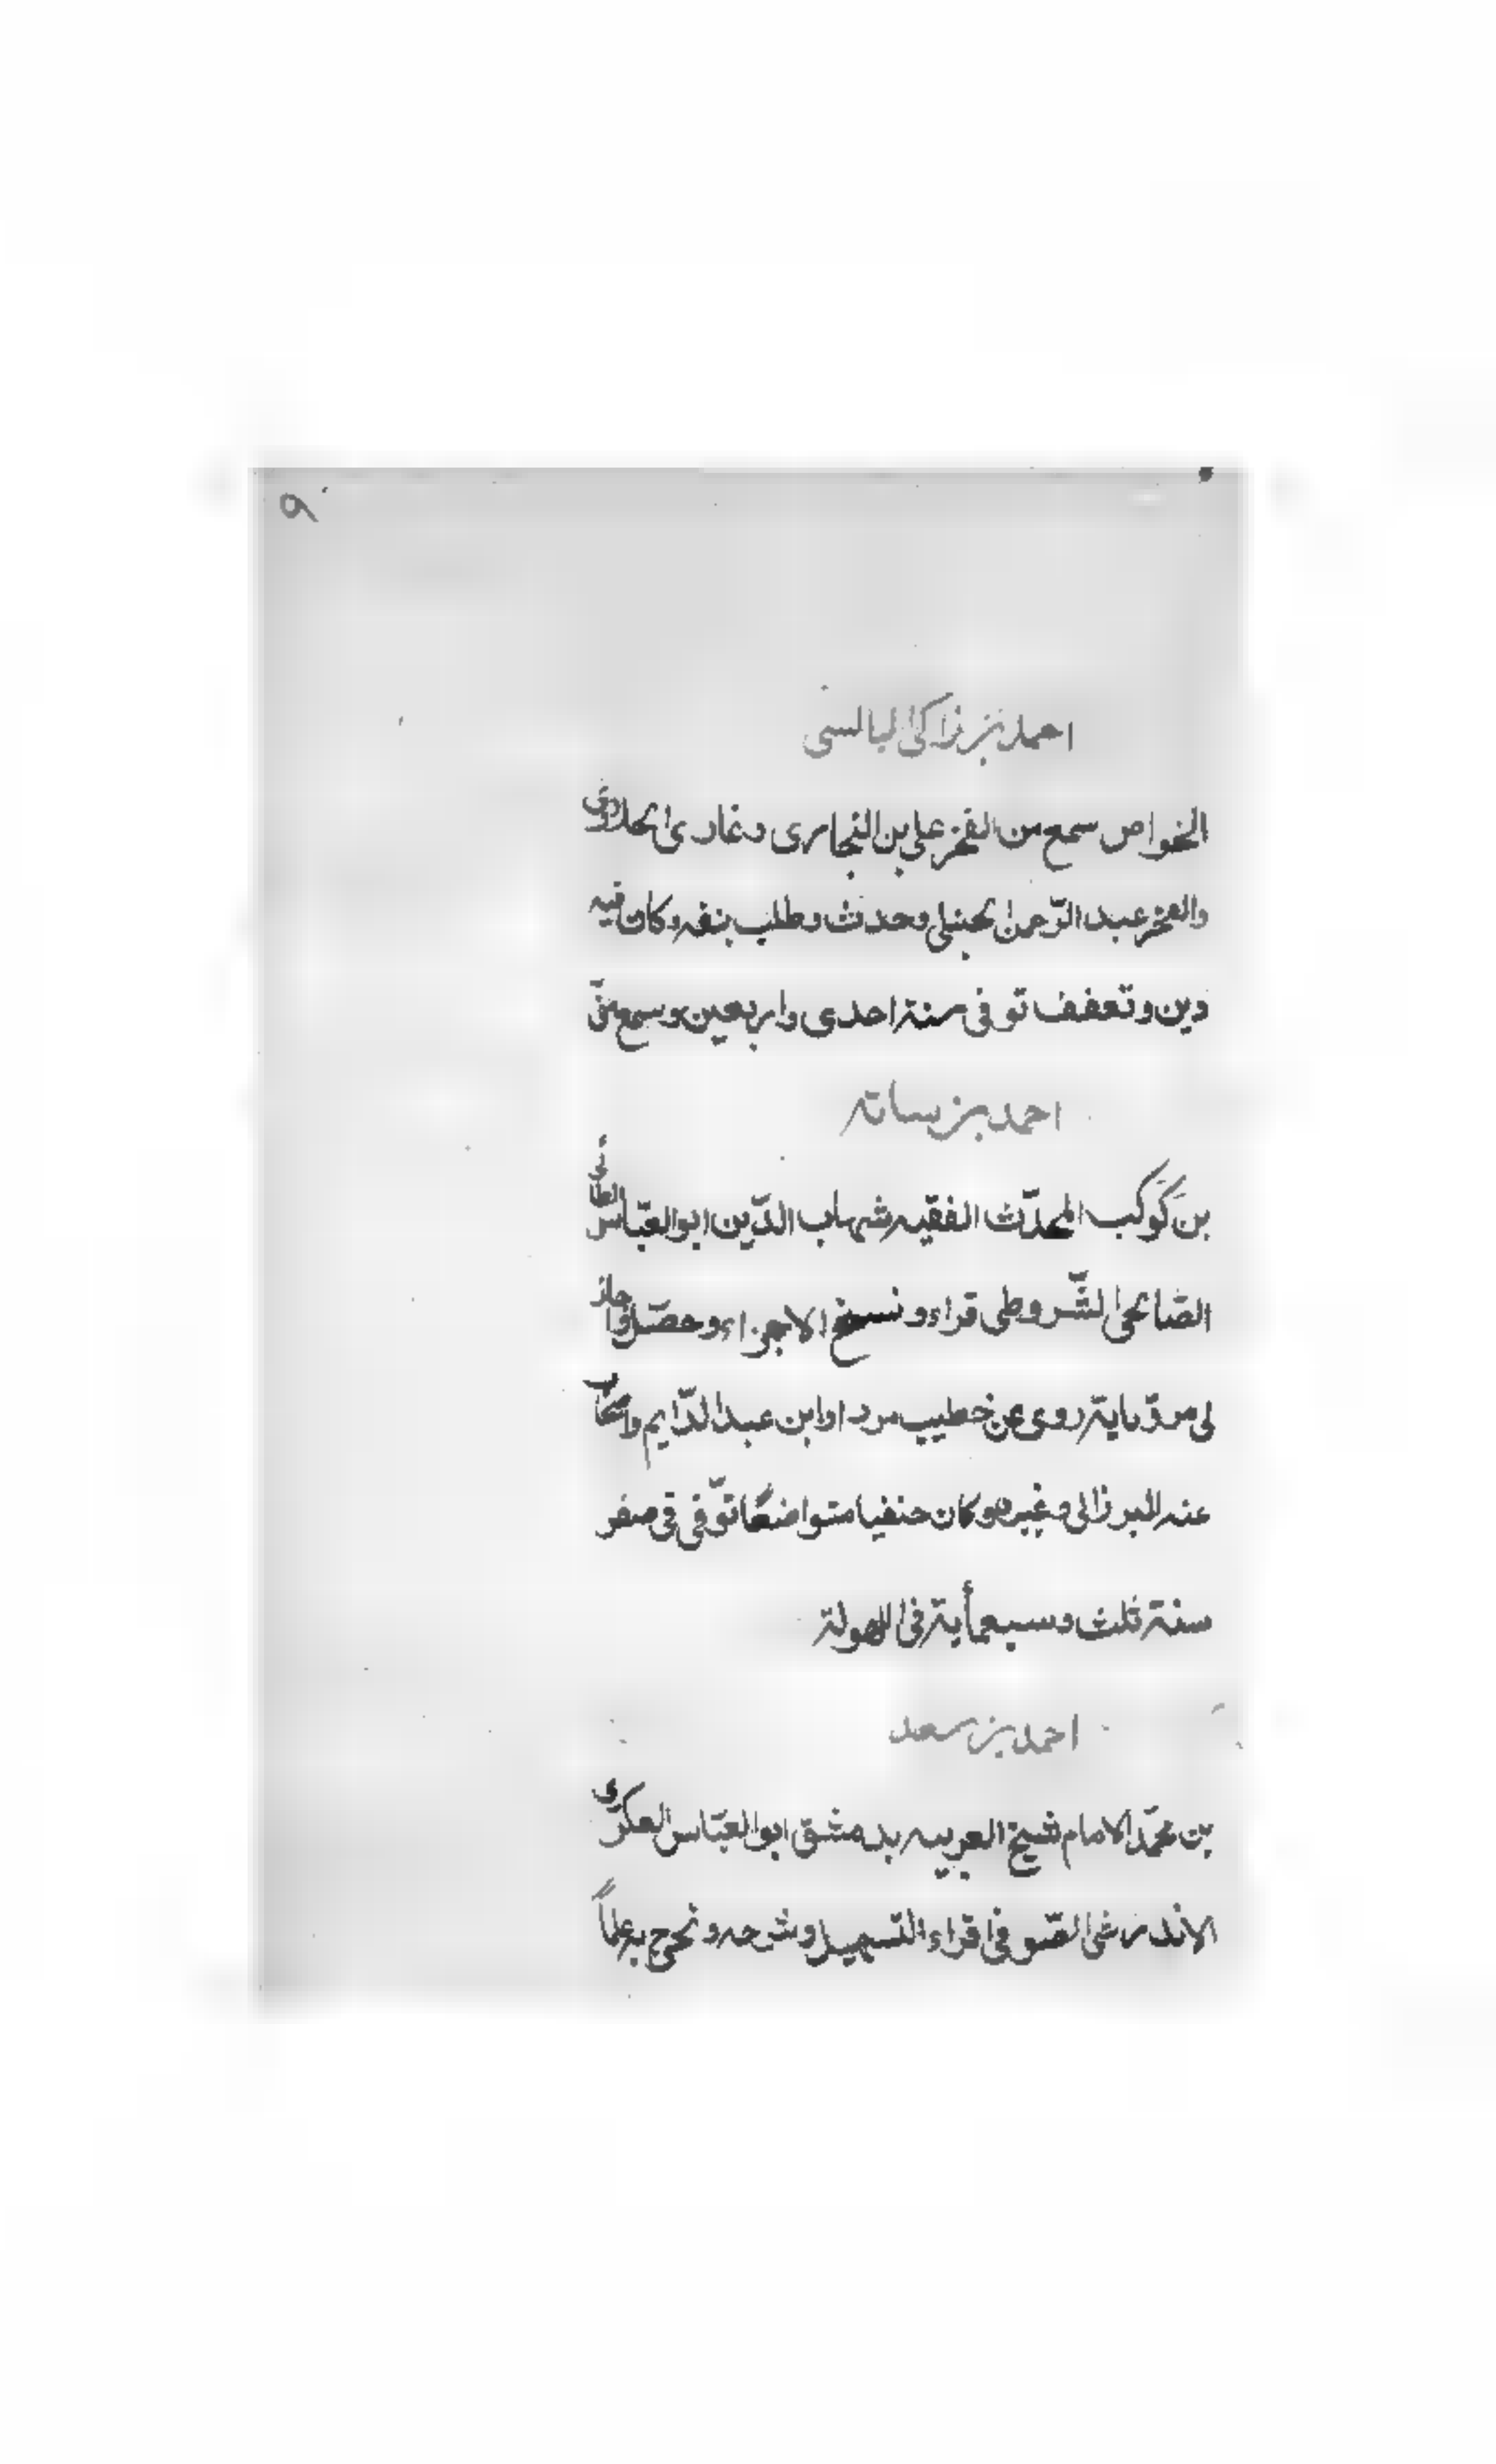 ٩
احمد بن زاكى البالسى
الخواص سمع من الفخر على بن البخارى وغازى الحلاوى
والفخر عبد الرّحمن الحنبلى وحدث وطلب بنفسه وكان فيه
دين وتعفف توفى سنة احدى واربعين وسمع منّى
احمد بن سامه
بن كَوكَب المحدّث الفقيه شهاب الدّين ابو العبّاس الطائى
الصّالحى الشّروطى قراء ونسخ الاجزاء وحصّل واجاز
لى مروّياته روى عن خطيب مردا وابن عبد الدّايم
عنه البرزالى وغيره وكان حنفيا متواضعًا توّفى فى صفر
سنة ثلث وسبعمأية فى الكهولة
احمد بن سعد
بن محمّد الامام شيخ العربيه بدمشق ابو العبّاس العسكرى
الاندرشى الصّوفى اقراء التسهيل وشرحه وتخرج به علماً